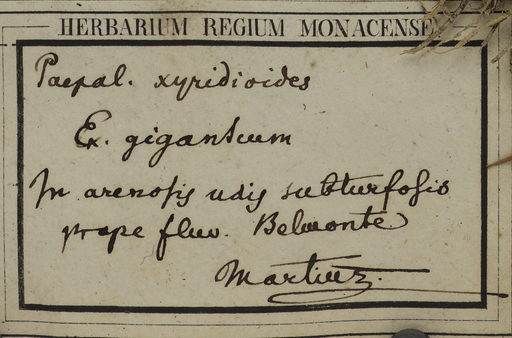 HERBARIUM REGIUM MONACENSE
Paepal. xyridioides
Ex. giganteum
In arenosis udis subturfosis
prope fluv. Belmonte
Martius.